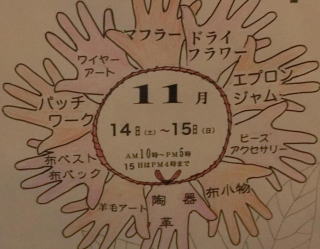 マフラー
ドライ
フラワー
ワイヤー
アート
エプロン
ジャム
パッチ
ワーク
11月
14日(土)~15日(日)
AM10時~PM5時
15日はPM4時まで
ビーズ
アクセサリー
布ベスト
布バック
布小物
羊毛アート
陶器
革